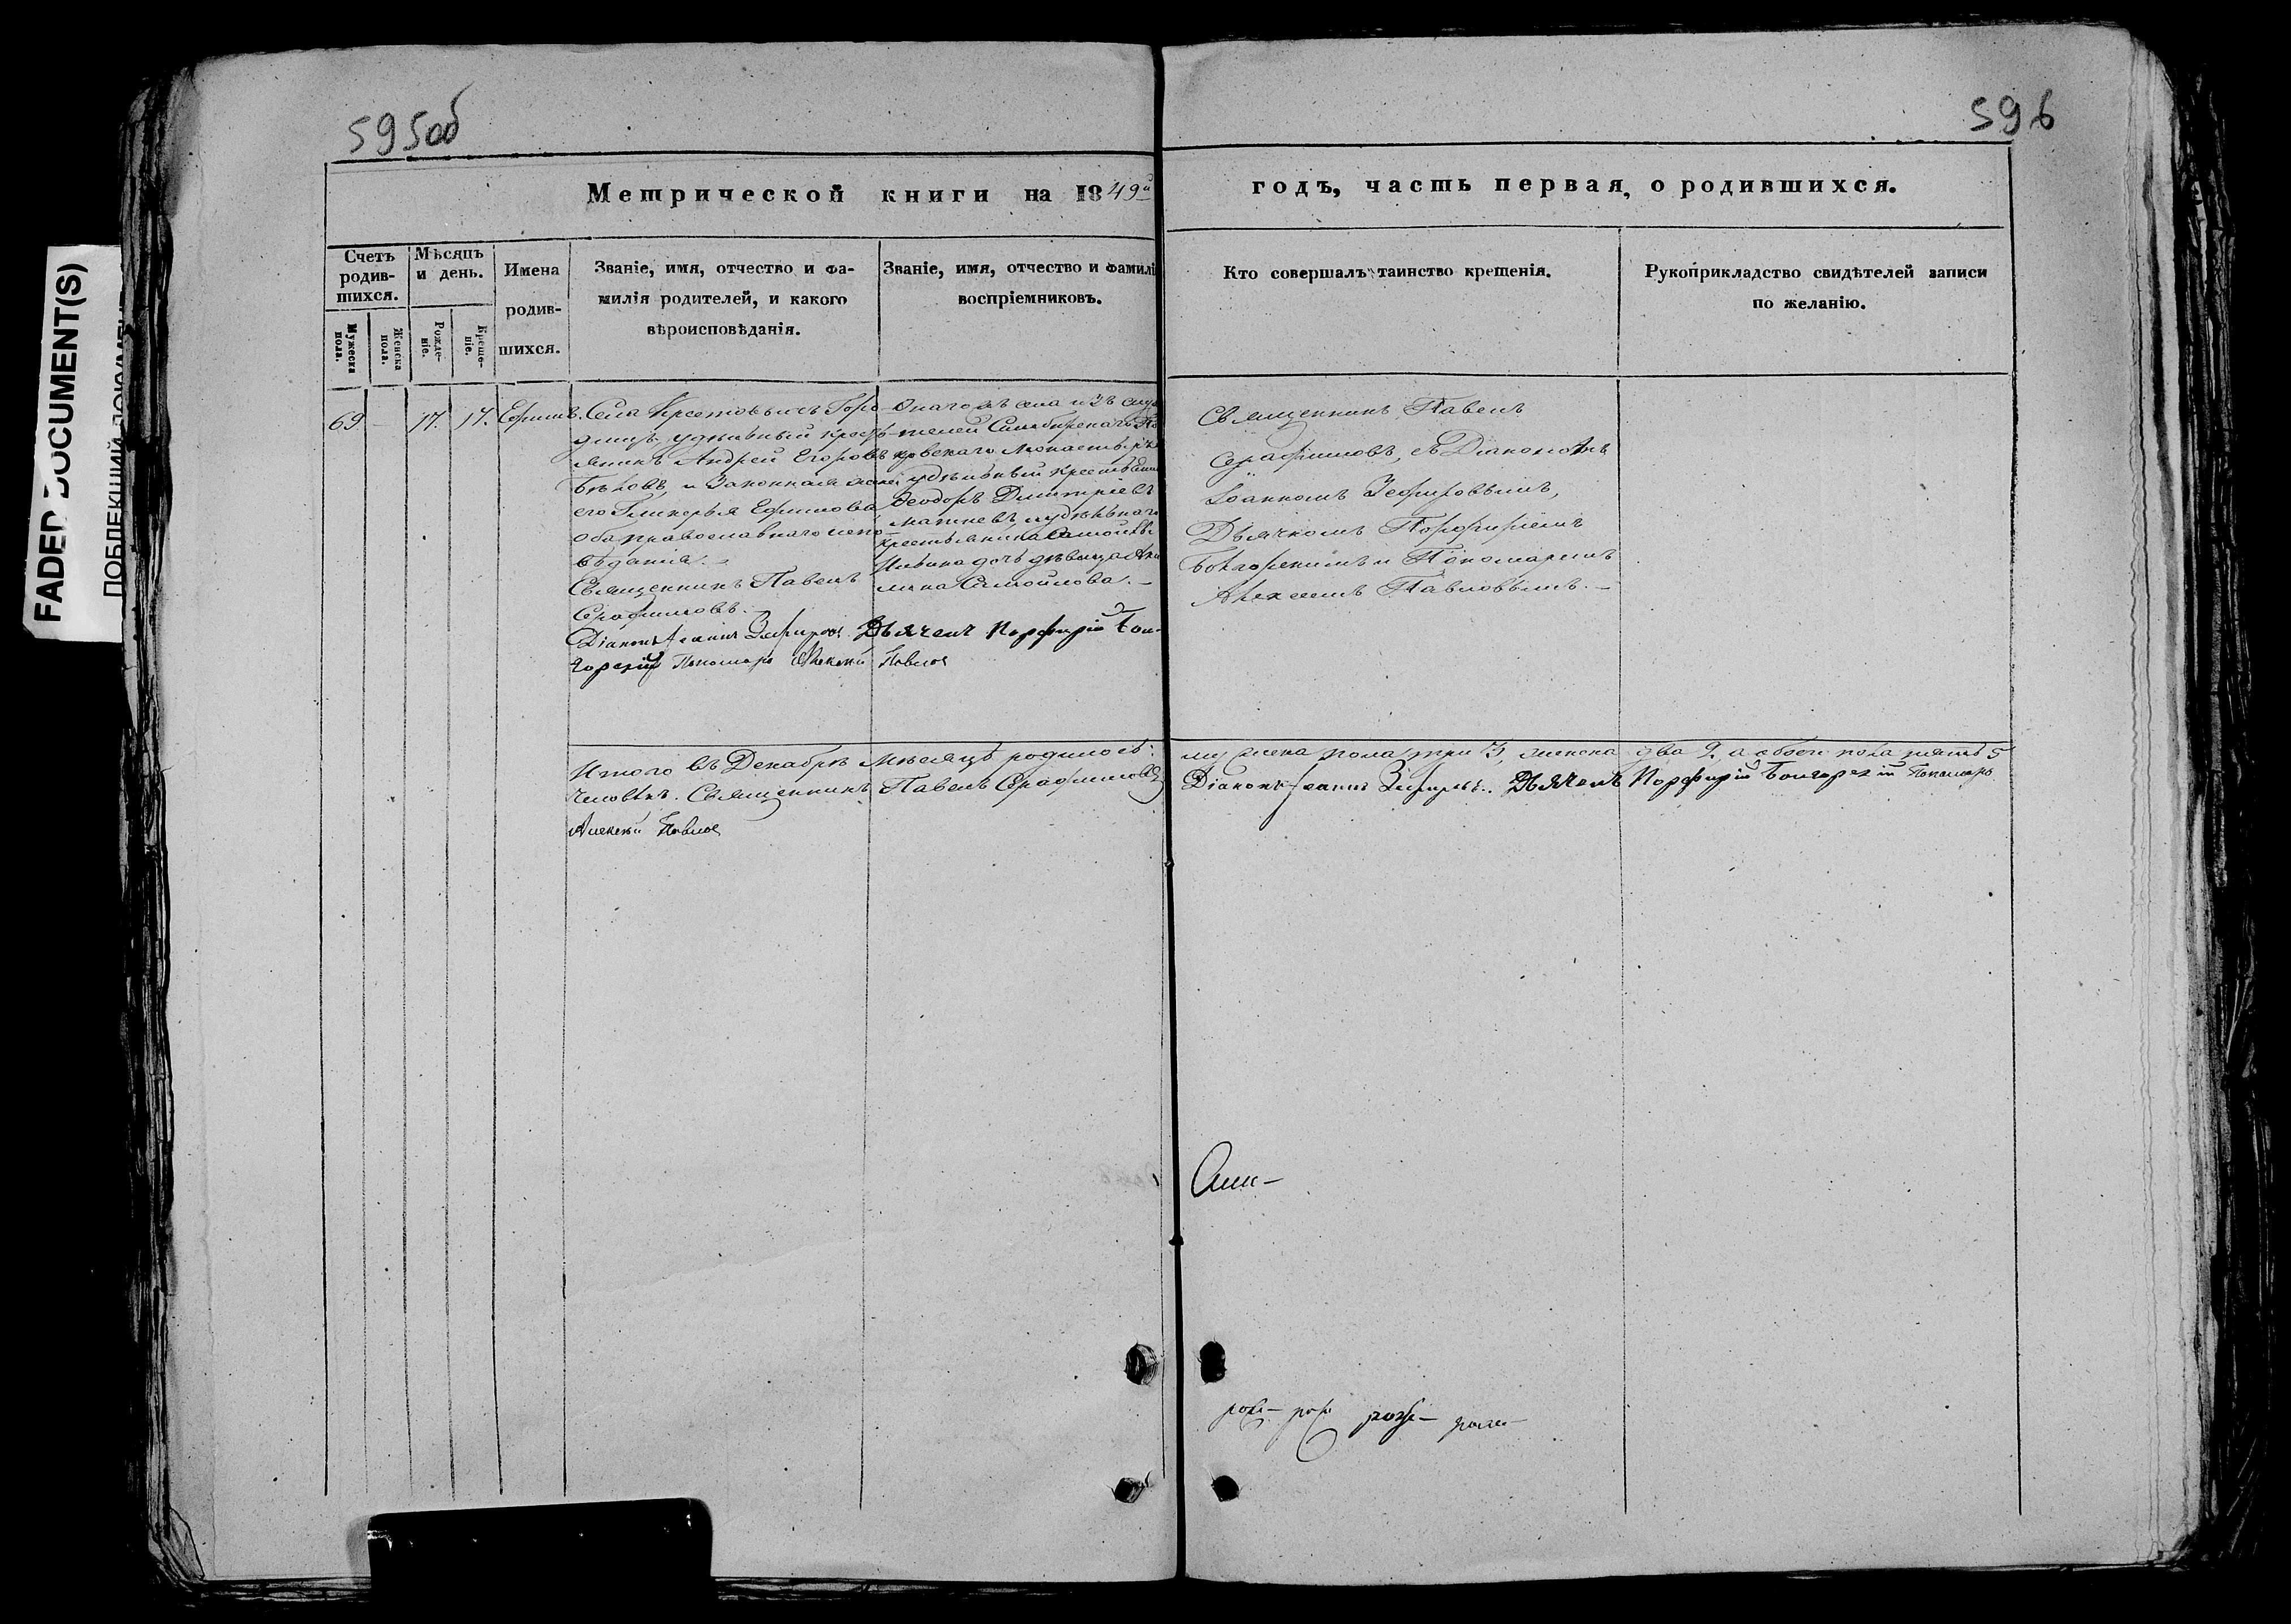 595об
596
FADED DOCUMENT(S)
Метрической книги на 1849й
годъ, часть первая, о родившихся.
Счетъ родив-шихся.
Мужеска пола.
Женска пола.
Мѣсяцъ и день.
Рожде-ніе.
Креще-ніе.
Имена
родив-
шихся.
Званіе, имя, отчество и фа-
милія родителей, и какого
вѣроисповѣданія.
Званіе, имя, отчество и фамилі
воспріемниковъ.
Кто совершалъ таинство крещенія.
Рукоприкладство свидѣтелей записи
по желанію.
69 – 17. 17. Ефимъ.
Села Крестовыхъ Горо-
дищъ удѣльный кресть-
янинъ Андрей Егоровъ
и законная жена
его Гликерья Ефимова
оба православнаго испо-
вѣданія.–
Священникъ Павелъ
Серафимовъ.
Діаконъ Іоаннъ Зефировъ. Дьячекъ Порфирій Бол-
гарскій Пономарь Алексѣй Павлов
тогожъ села изъ слу
жителей Симбирскаго По
кровскаго Монастыря
удѣльный крестьянинъ
Ѳеодоръ Димитріевъ
и удѣльнаго
крестьянина Самойлы
дочь дѣвица Аку
лина Самойлова.–
Священникъ Павелъ
Серафимовъ, съ Діакономъ
Іоанномъ Зефировымъ,
Дьячкомъ Порфиріемъ
Болгарскимъ и Пономаремъ
Алексеемъ Павловымъ.–
Итого въ Декабрѣ мѣсяцѣ родилось: мужеска пола три 3, женска два 2, а обоего пола пять 5
человѣкъ. Священникъ Павелъ Серафимовъ Діаконъ Іоаннъ Зефировъ. Дьячекъ Порфирій Болгарскій Пономарь
Алексѣй Павлов